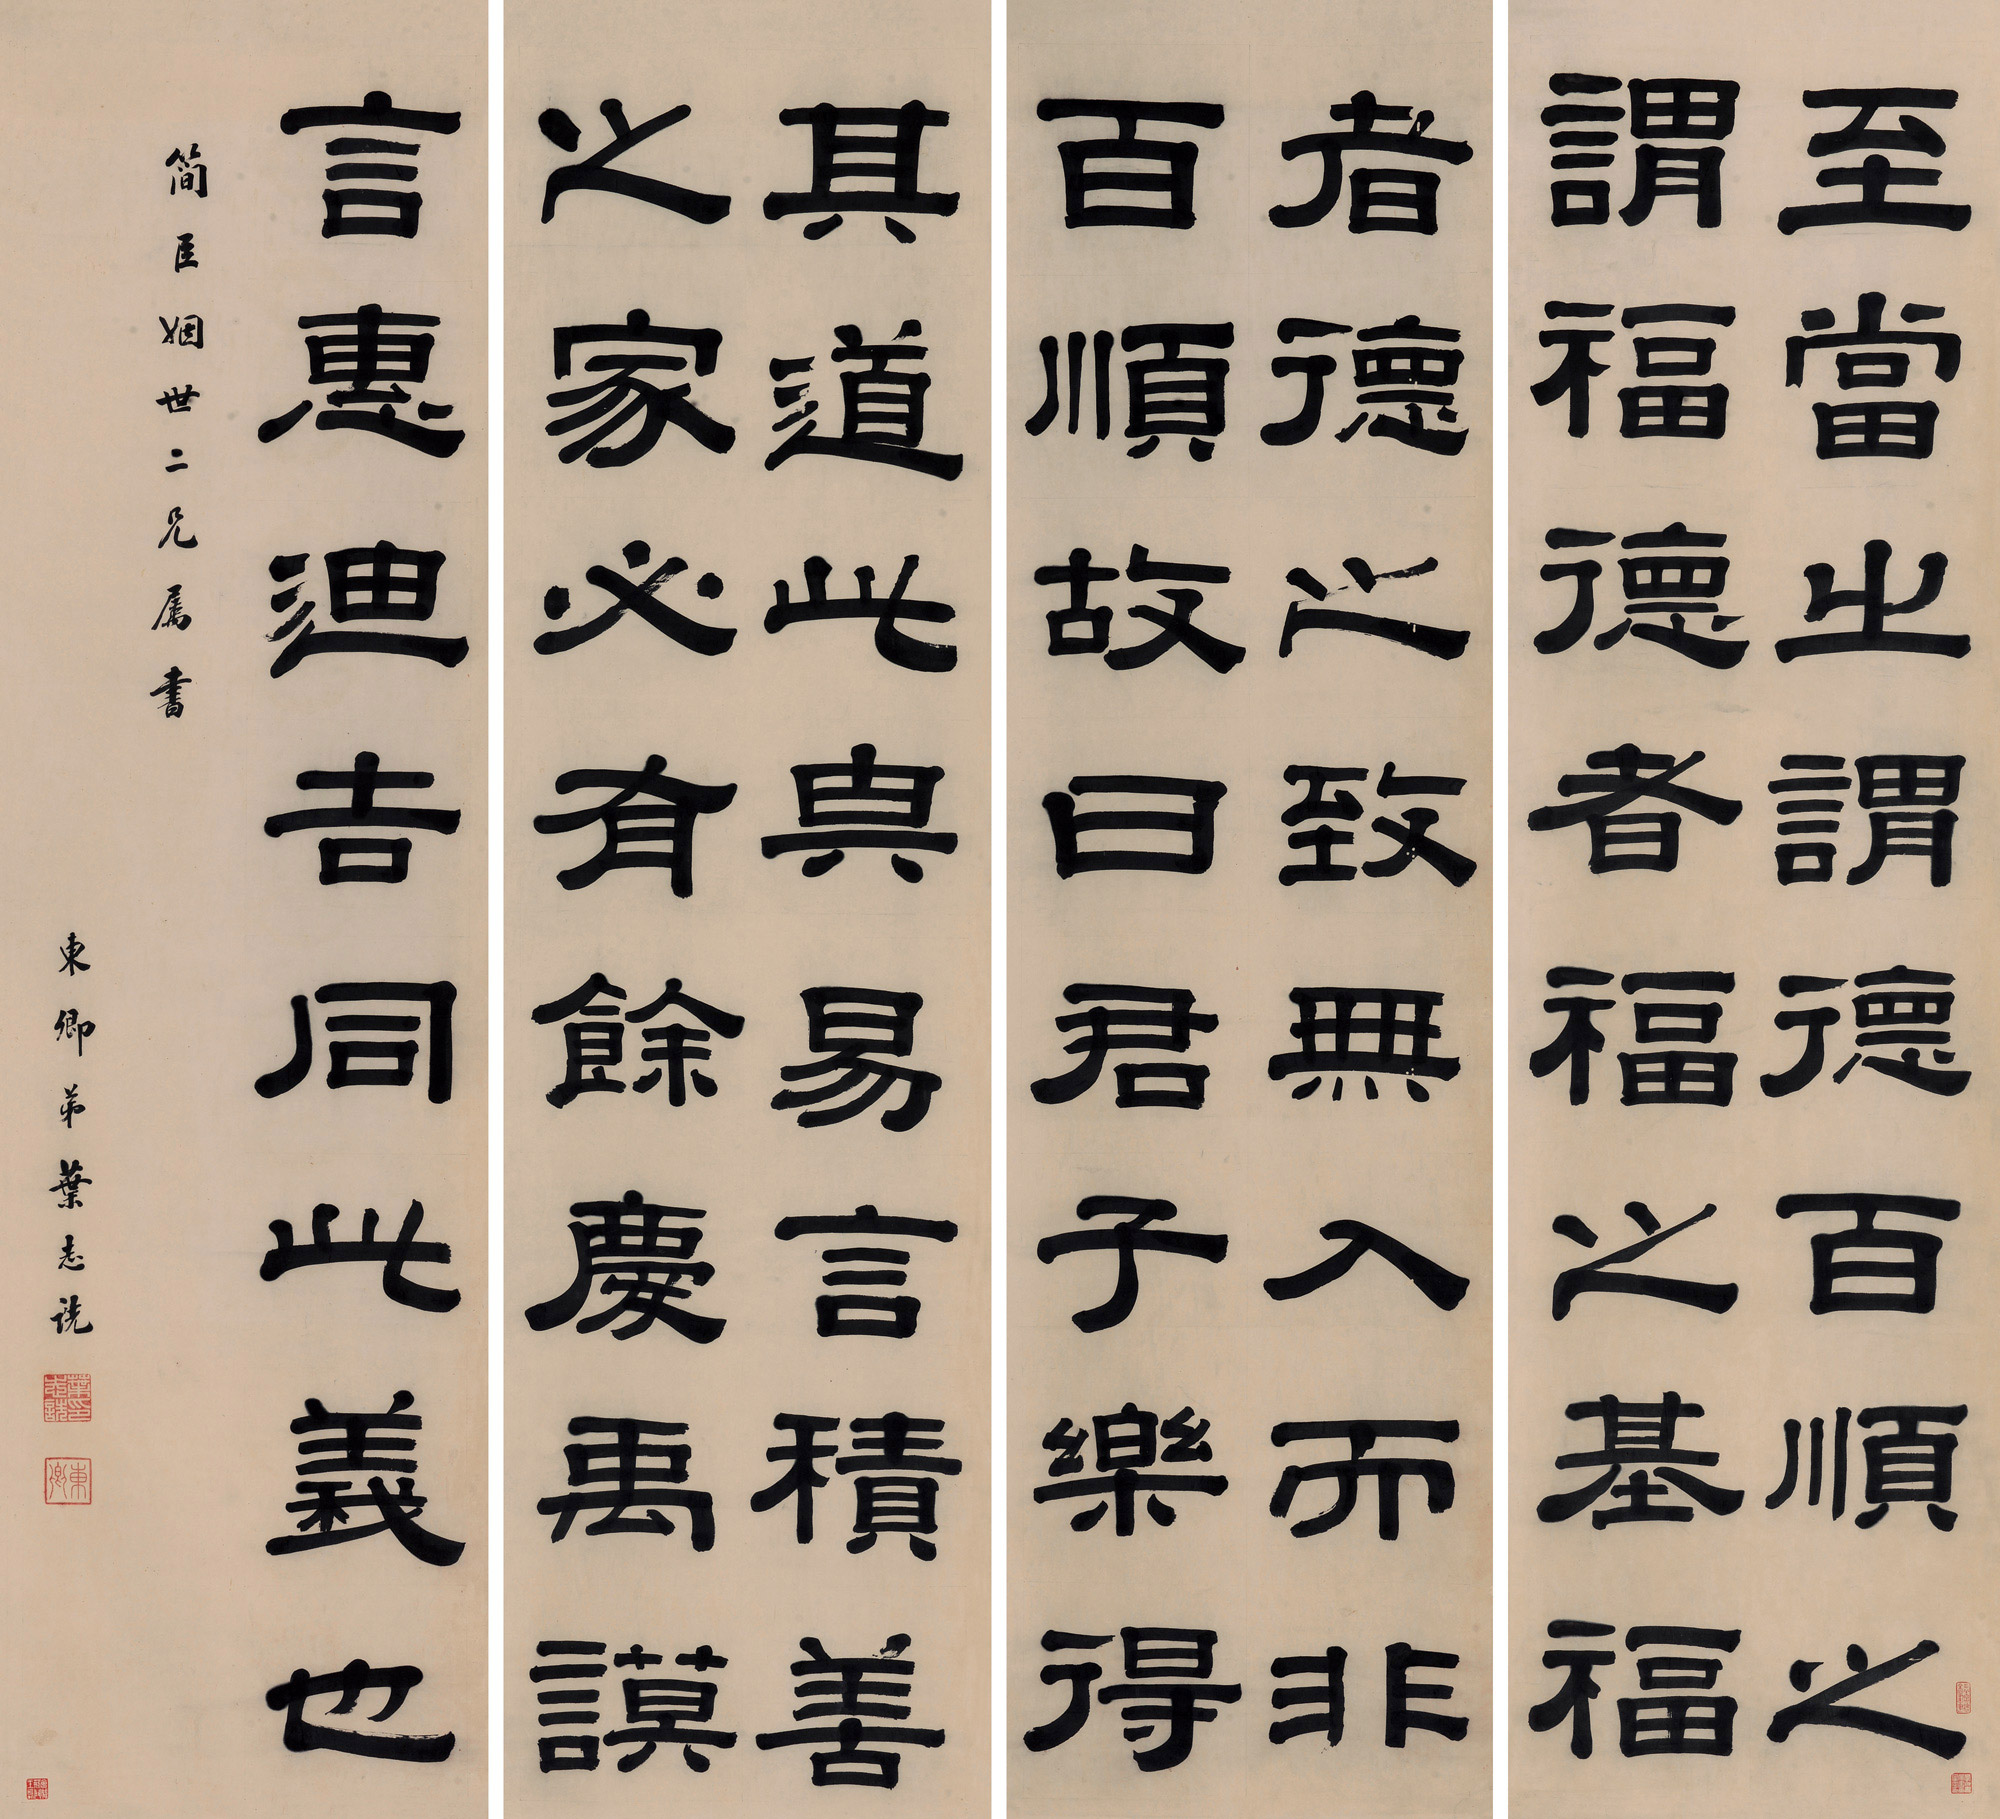 至當之謂德百順之
謂福德者福之基福
者德之致無入而非
百順故曰君子樂得
其道此與易言積善
之家必有餘慶禹謨
言惠迪吉同此義也
簡臣姻世二兄屬書
東卿弟葉志詵
葉志詵印
東卿